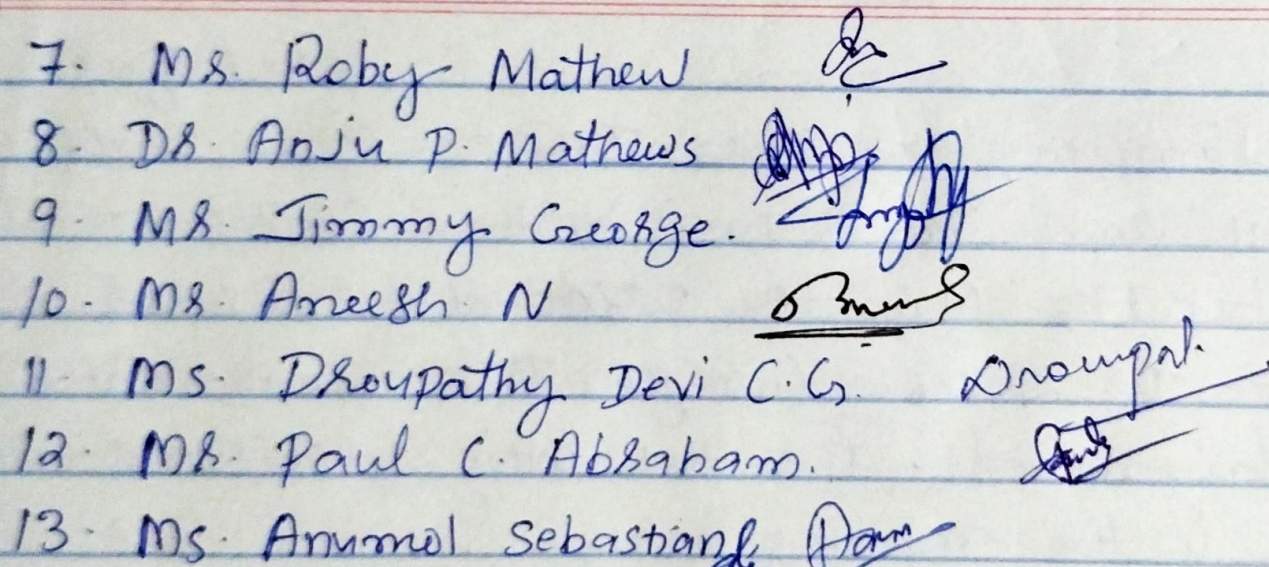 7. Mr. Roby Mathew
8. Dr. Anju P. Mathews
9. Mr. Jimmy George.
10. Mr. Aneesh N
11. Ms. Droupathy Devi C.G. Droupat
12. Mr. Paul C. Abraham.
13. Ms. Anumol Sebastian